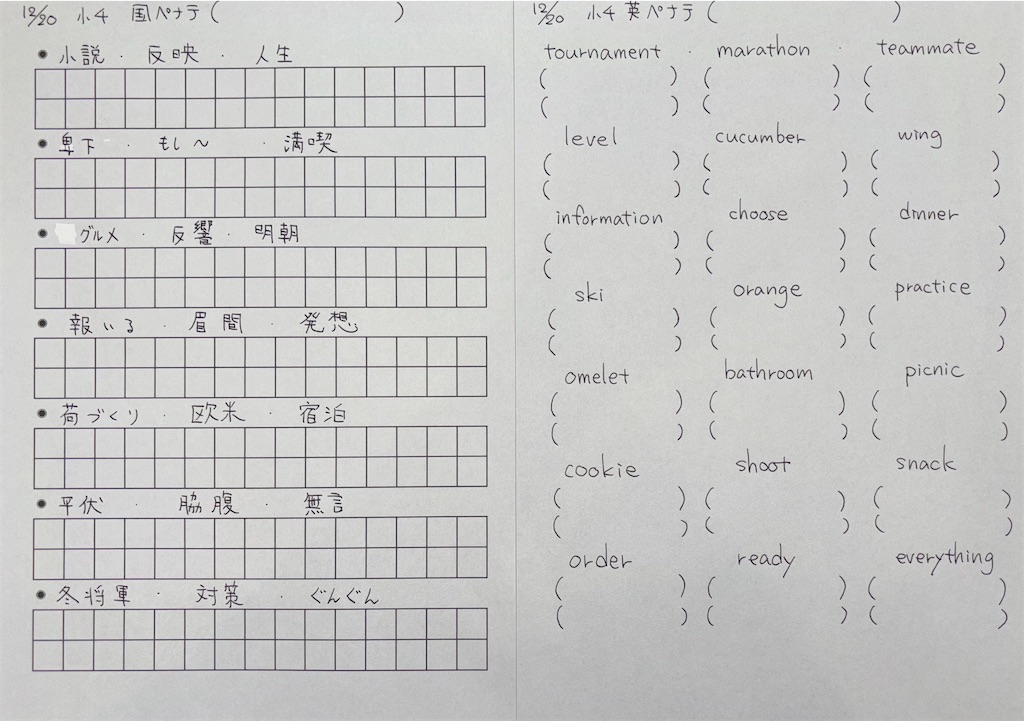 12/20 小4 国ペナテ（　　　）
● 小説 ・ 反映 ・ 人生
● 卑下 ・ もし〜 ・ 満喫
● グルメ ・ 反響 ・ 明朝
● 報いる ・ 眉間 ・ 発想
● 荷づくり ・ 欧米 ・ 宿泊
● 平伏 ・ 脇腹 ・ 無言
● 冬将軍 ・ 対策 ・ ぐんぐん
12/20 小4 英ペナテ（　　　）
tournament ・ marathon ・ teammate
level cucumber wing
information choose dinner
ski orange practice
omelet bathroom picnic
cookie shoot snack
order ready everything